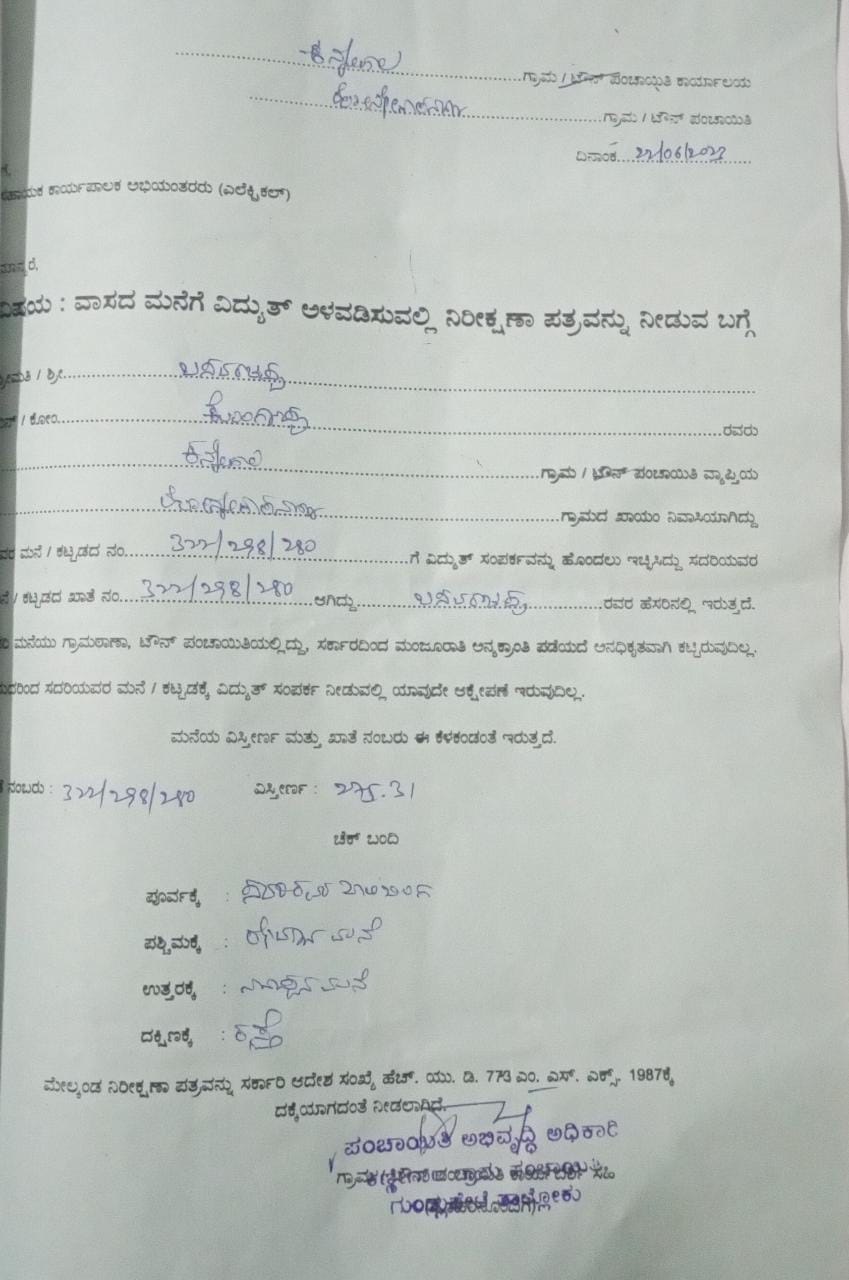 ಕನ್ನೇಗಾಲ ಗ್ರಾಮ / ಟೌನ್ ಪಂಚಾಯಿತಿ ಕಾರ್ಯಾಲಯ
ಗ್ರಾಮ / ಟೌನ್ ಪಂಚಾಯಿತಿ
ದಿನಾಂಕ....22/06/2023
ಕಾರ್ಯಪಾಲಕ ಅಭಿಯಂತರರು (ಎಲೆಕ್ಟ್ರಿಕಲ್)
ಮಾನ್ಯರೆ,
ವಿಷಯ : ವಾಸದ ಮನೆಗೆ ವಿದ್ಯುತ್ ಅಳವಡಿಸುವಲ್ಲಿ ನಿರೀಕ್ಷಣಾ ಪತ್ರವನ್ನು ನೀಡುವ ಬಗ್ಗೆ
/ ಶ್ರೀ. ಬಸವರಾಜಪ್ಪ
/ ಕೋಂ. ರವರು
ಕನ್ನೇಗಾಲ ಗ್ರಾಮ / ಟೌನ್ ಪಂಚಾಯಿತಿ ವ್ಯಾಪ್ತಿಯ
ಗ್ರಾಮದ ಖಾಯಂ ನಿವಾಸಿಯಾಗಿದ್ದು
ಮನೆ / ಕಟ್ಟಡದ ನಂ. 322/298/280 ಗೆ ವಿದ್ಯುತ್ ಸಂಪರ್ಕವನ್ನು ಹೊಂದಲು ಇಚ್ಛಿಸಿದ್ದು ಸದರಿಯವರ
/ ಕಟ್ಟಡದ ಖಾತೆ ನಂ. 322/298/280 ಆಗಿದ್ದು ಬಸವರಾಜಪ್ಪ ರವರ ಹೆಸರಿನಲ್ಲಿ ಇರುತ್ತದೆ.
ಮನೆಯು ಗ್ರಾಮಠಾಣಾ, ಟೌನ್ ಪಂಚಾಯಿತಿಯಲ್ಲಿದ್ದು, ಸರ್ಕಾರದಿಂದ ಮಂಜೂರಾತಿ ಅನ್ಯಕ್ರಾಂತಿ ಪಡೆಯದೆ ಅನಧಿಕೃತವಾಗಿ ಕಟ್ಟಿರುವುದಿಲ್ಲ.
ಸದರಿಯವರ ಮನೆ / ಕಟ್ಟಡಕ್ಕೆ ವಿದ್ಯುತ್ ಸಂಪರ್ಕ ನೀಡುವಲ್ಲಿ ಯಾವುದೇ ಆಕ್ಷೇಪಣೆ ಇರುವುದಿಲ್ಲ.
ಮನೆಯ ವಿಸ್ತೀರ್ಣ ಮತ್ತು ಖಾತೆ ನಂಬರು ಈ ಕೆಳಕಂಡಂತೆ ಇರುತ್ತದೆ.
ನಂಬರು : 322/298/280 ವಿಸ್ತೀರ್ಣ : 275.31
ಚೆಕ್ ಬಂದಿ
ಪೂರ್ವಕ್ಕೆ :
ಪಶ್ಚಿಮಕ್ಕೆ : ಮನೆ
ಉತ್ತರಕ್ಕೆ : ಮನೆ
ದಕ್ಷಿಣಕ್ಕೆ : ರಸ್ತೆ
ಮೇಲ್ಕಂಡ ನಿರೀಕ್ಷಣಾ ಪತ್ರವನ್ನು ಸರ್ಕಾರಿ ಆದೇಶ ಸಂಖ್ಯೆ ಹೆಚ್. ಯು. ಡಿ. 773 ಎಂ. ಎಸ್. ಎಕ್ಸ್. 1987ಕ್ಕೆ
ದಕ್ಕೆಯಾಗದಂತೆ ನೀಡಲಾಗಿದೆ.
ಪಂಚಾಯಿತಿ ಅಭಿವೃದ್ಧಿ ಅಧಿಕಾರಿ
ಗುಂಡ್ಲುಪೇಟೆ ತಾಲ್ಲೋಕು